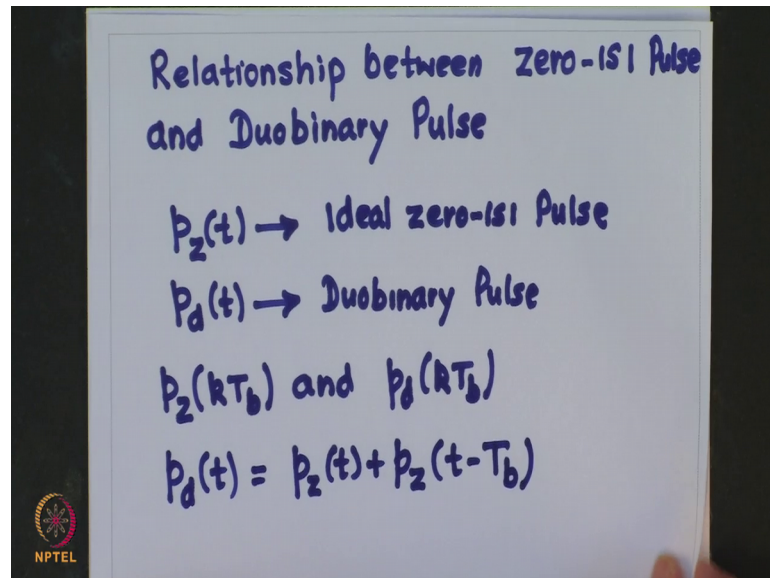 Relationship between zero-ISI Pulse
and Duobinary Pulse
p_z(t) → Ideal zero-ISI Pulse
p_d(t) → Duobinary Pulse
p_z(kT_b) and p_d(kT_b)
p_d(t) = p_z(t) + p_z(t-T_b)
NPTEL